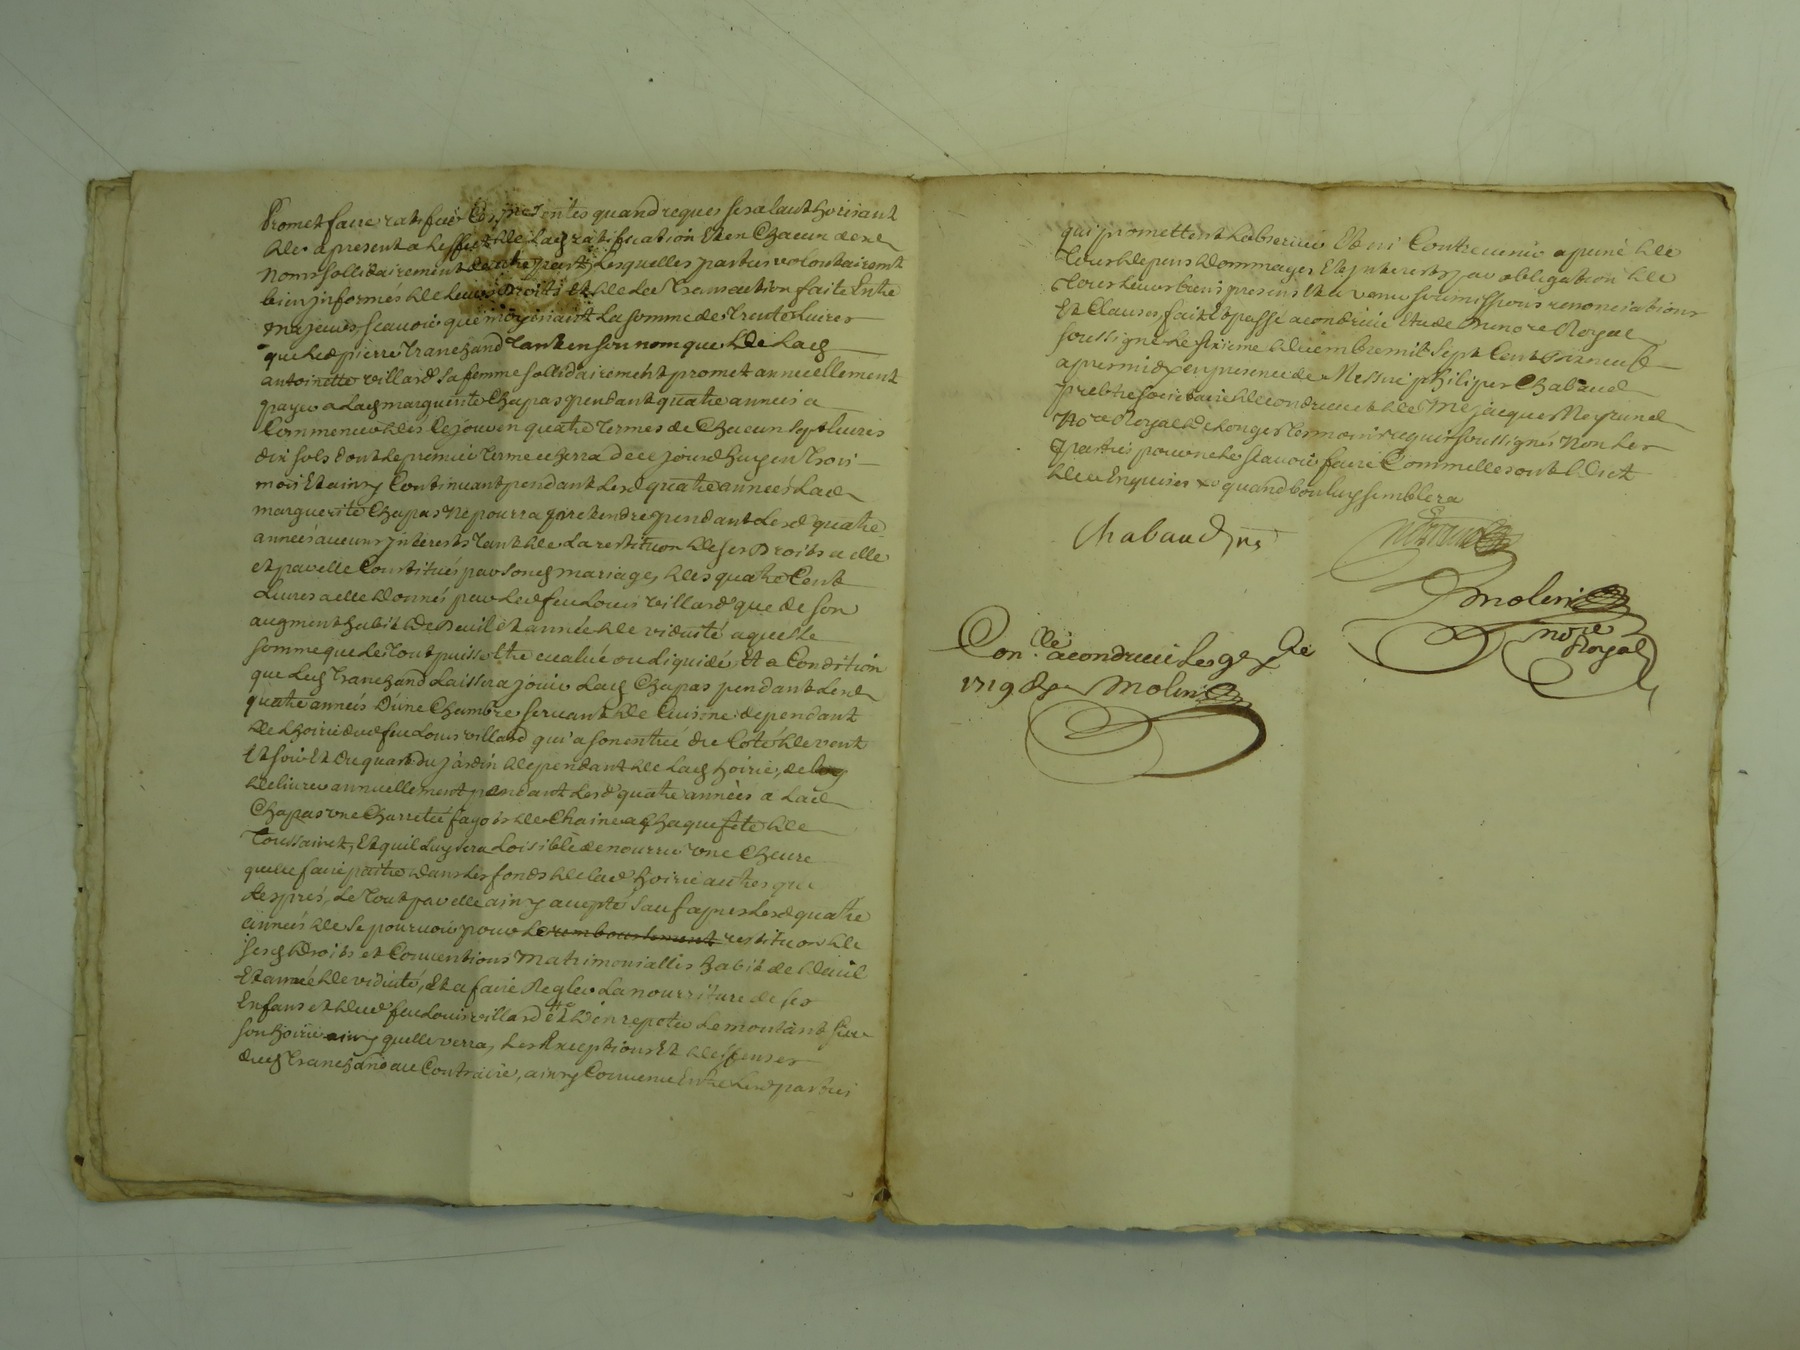 Promet faire ratifier Ces presentes quand requis sera lauthorisant
des apresent a leffet de lad ratification Et en Chacun desd
Noms sollidairement dautre part, Lesquelles parties volontairemt
bien informés de leurs Droits Et de La Transaction faite Entre
majeurs, scavoir que moyeniant La somme de Trente Livres
que led pierre Tranchand Tant en son nom que de lad
antoinette villard sa femme sollidairement promet annuellement
payer a Lad marguerite Chapas pendant quatre années a
Commencer dés Cejour en quatre Termes de Chacun sept livres
dix sols dont le premier Terme echerra de ce jourdhuy en Trois
mois Et ainsy Continuant pendant Lesd quatre années Lad
marguerite Chapas Ne pourra pretendre pendant Lesd quatre
années aucuns Interests Tant de La restition de ses Droits a elle
et par elle Constitués par son mariage, des quatre Cent
Livres a elle Donnés par led feu Louis villard que de son
augment habit de Deuil Et année de viduité a quelle
somme que le Tout puisse être evalué ou liquidé, Et a Condition
que led Tranchand Laissera jouir Lad Chapas pendant Lesd
quatre années D'une Chambre servant de Cuisine dependant
de Lhoirie dud feu Louis villard qui a son entrée du Coté de vent
Et soir Et du quart du jardin dependant de Lad hoirie, de
delivrer annuellement pendant Lesd quatre années a Lad
Chapas une Charretée fagots de Chaine a Chaque fête de
Toussaint, Et quil Luy sera Loisible de nourrir une Chevre
quelle faire paitre dans les fonds de lad hoirie autres que
Les prés, Le Tout par elle ainsy accepté sauf apres Lesd quatre
années de se pourvoir pour le remboursement restition de
sesd Droits et Conventions Matrimonialles habit de deuil
Et année de viduité, Et a faire Regler La nourriture de ses
Enfans et dud feu Louis villard Et D'en repeter Le montant sur
son hoirie ainsy quelle verra, Les Exceptions Et deffenses
dud Tranchand au Contraire, ainsy Convenu Entre Lesd parties
qui promettent Lobserver Et ni Contrevenir a peine de
Tous depens Dommages Et Interests par obligation de
Tous Leurs biens presens Et a venir soumissions renonciations
Et Clauses, fait Et passé a condrieu Etude du Nore Royal
soussigné Le sixieme decembre mil sept Cent dixneuf
apres midy en presence de Messire philipes Chabaud
prebtre societaire de condrieu et de Me jacques Meyrand
Nore Royal de Longes Temoins requis soussignés Non Les
parties pour ne le scavoir faire Comme elles ont dit
de ce Enquises quand bon luy semblera
Chabaud
Molin
nore
Royal
Conlé a condrieu le 9e xbre
1719 Molin